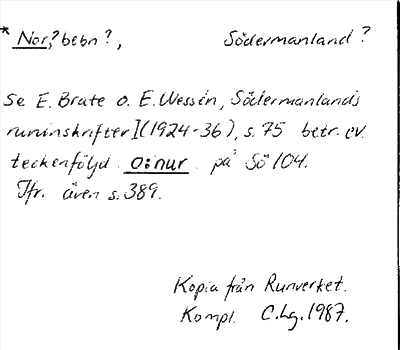 * Nor, ? bebn?, Södermanland?
Se E. Brate o. E. Wessén, Södermanlands
runinskrifter I (1924-36), s. 75 betr. ev.
teckenföljd o:nur på Sö 104.
Jfr. även s. 389.
Kopia från Runverket.
Kompl. C.Lg. 1987.